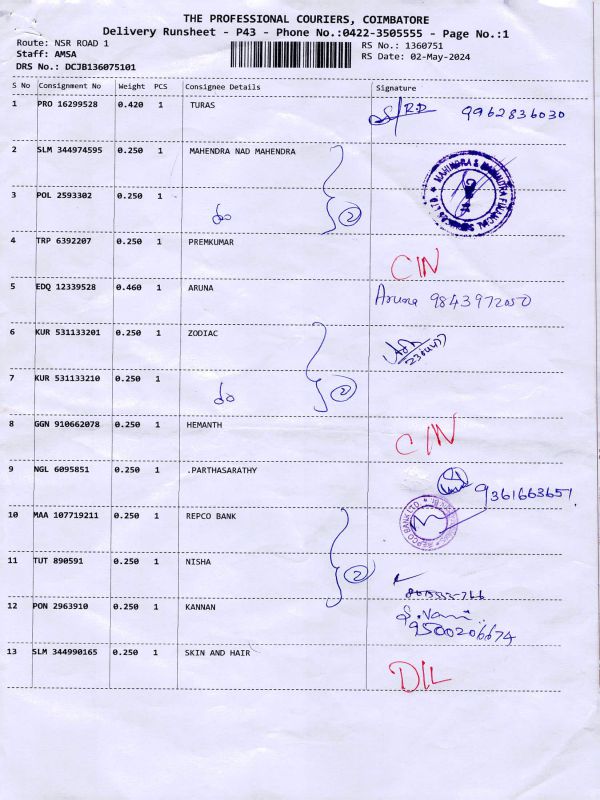 THE PROFESSIONAL COURIERS, COIMBATORE
Delivery Runsheet - P43 - Phone No.:0422-3505555 - Page No.:1
Route: NSR ROAD 1
RS No.: 1360751
Staff: AMSA
RS Date: 02-May-2024
DRS No.: DCJB136075101
S No Consignment No Weight PCS Consignee Details Signature
1 PRO 16299528 0.420 1 TURAS R.D 9962836030
2 SLM 344974595 0.250 1 MAHENDRA NAD MAHENDRA
MAHINDRA & MAHINDRA FINANCIAL SERVICES LTD.
3 POL 2593302 0.250 1
do 2
4 TRP 6392207 0.250 1 PREMKUMAR
CIN
5 EDQ 12339528 0.460 1 ARUNA Aruna 9843972050
6 KUR 531133201 0.250 1 ZODIAC
7 KUR 531133210 0.250 1
do 2
8 GGN 910662078 0.250 1 HEMANTH CIN
9 NGL 6095851 0.250 1 .PARTHASARATHY
9361663651
10 MAA 107719211 0.250 1 REPCO BANK
REPCO BANK LTD
11 TUT 890591 0.250 1 NISHA
2
12 PON 2963910 0.250 1 KANNAN S. Vani
9500206674
13 SLM 344990165 0.250 1 SKIN AND HAIR
D/L